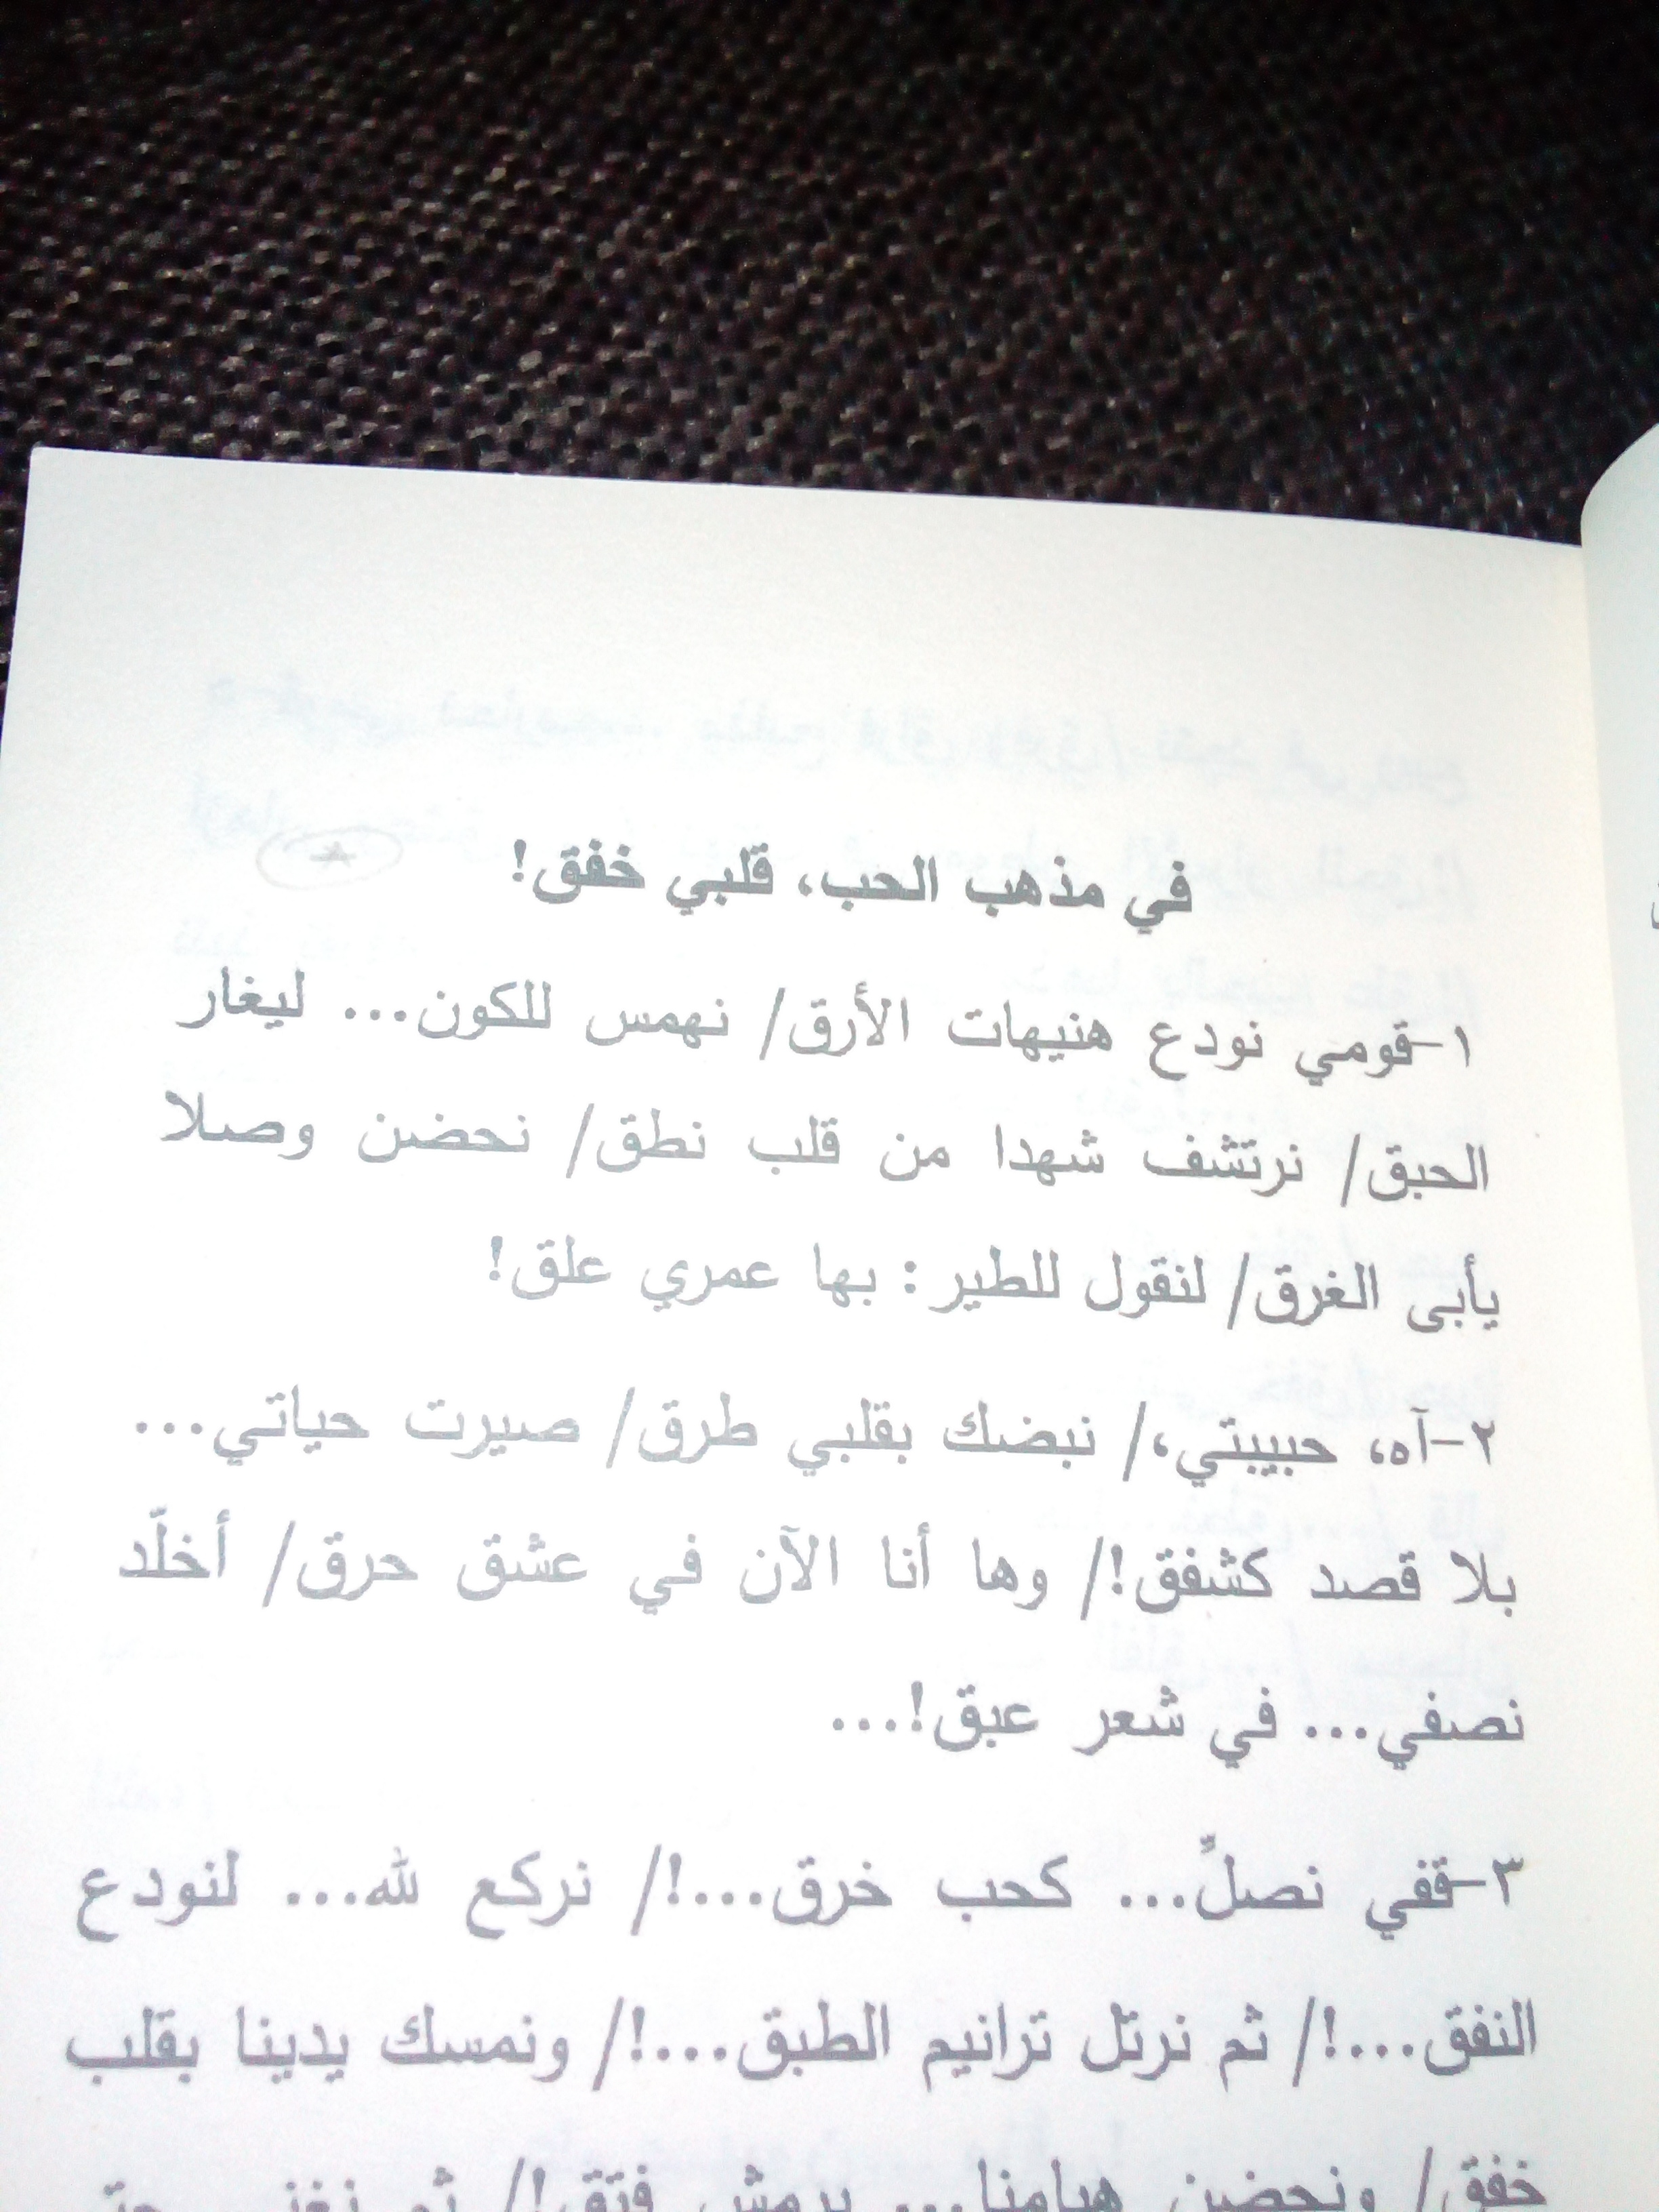 في مذهب الحب، قلبي خفق!
١-قومي نودع هنيهات الأرق/ نهمس للكون... ليغار
الحبق/ نرتشف شهدا من قلب نطق/ نحضن وصلا
يأبى الغرق/ لنقول للطير: بها عمري علق!
٢-آه، حبيبتي،/ نبضك بقلبي طرق/ صيرت حياتي...
بلا قصد كشفق!/ وها أنا الآن في عشق حرق/ أخلّد
نصفي... في شعر عبق!...
٣-قفي نصلِّ... كحب خرق...!/ نركع لله... لنودع
النفق...!/ ثم نرتل ترانيم الطبق...!/ ونمسك يدينا بقلب
خفق/ ونحضن هيامنا... برمش فتق!/ ثم نغني حتى